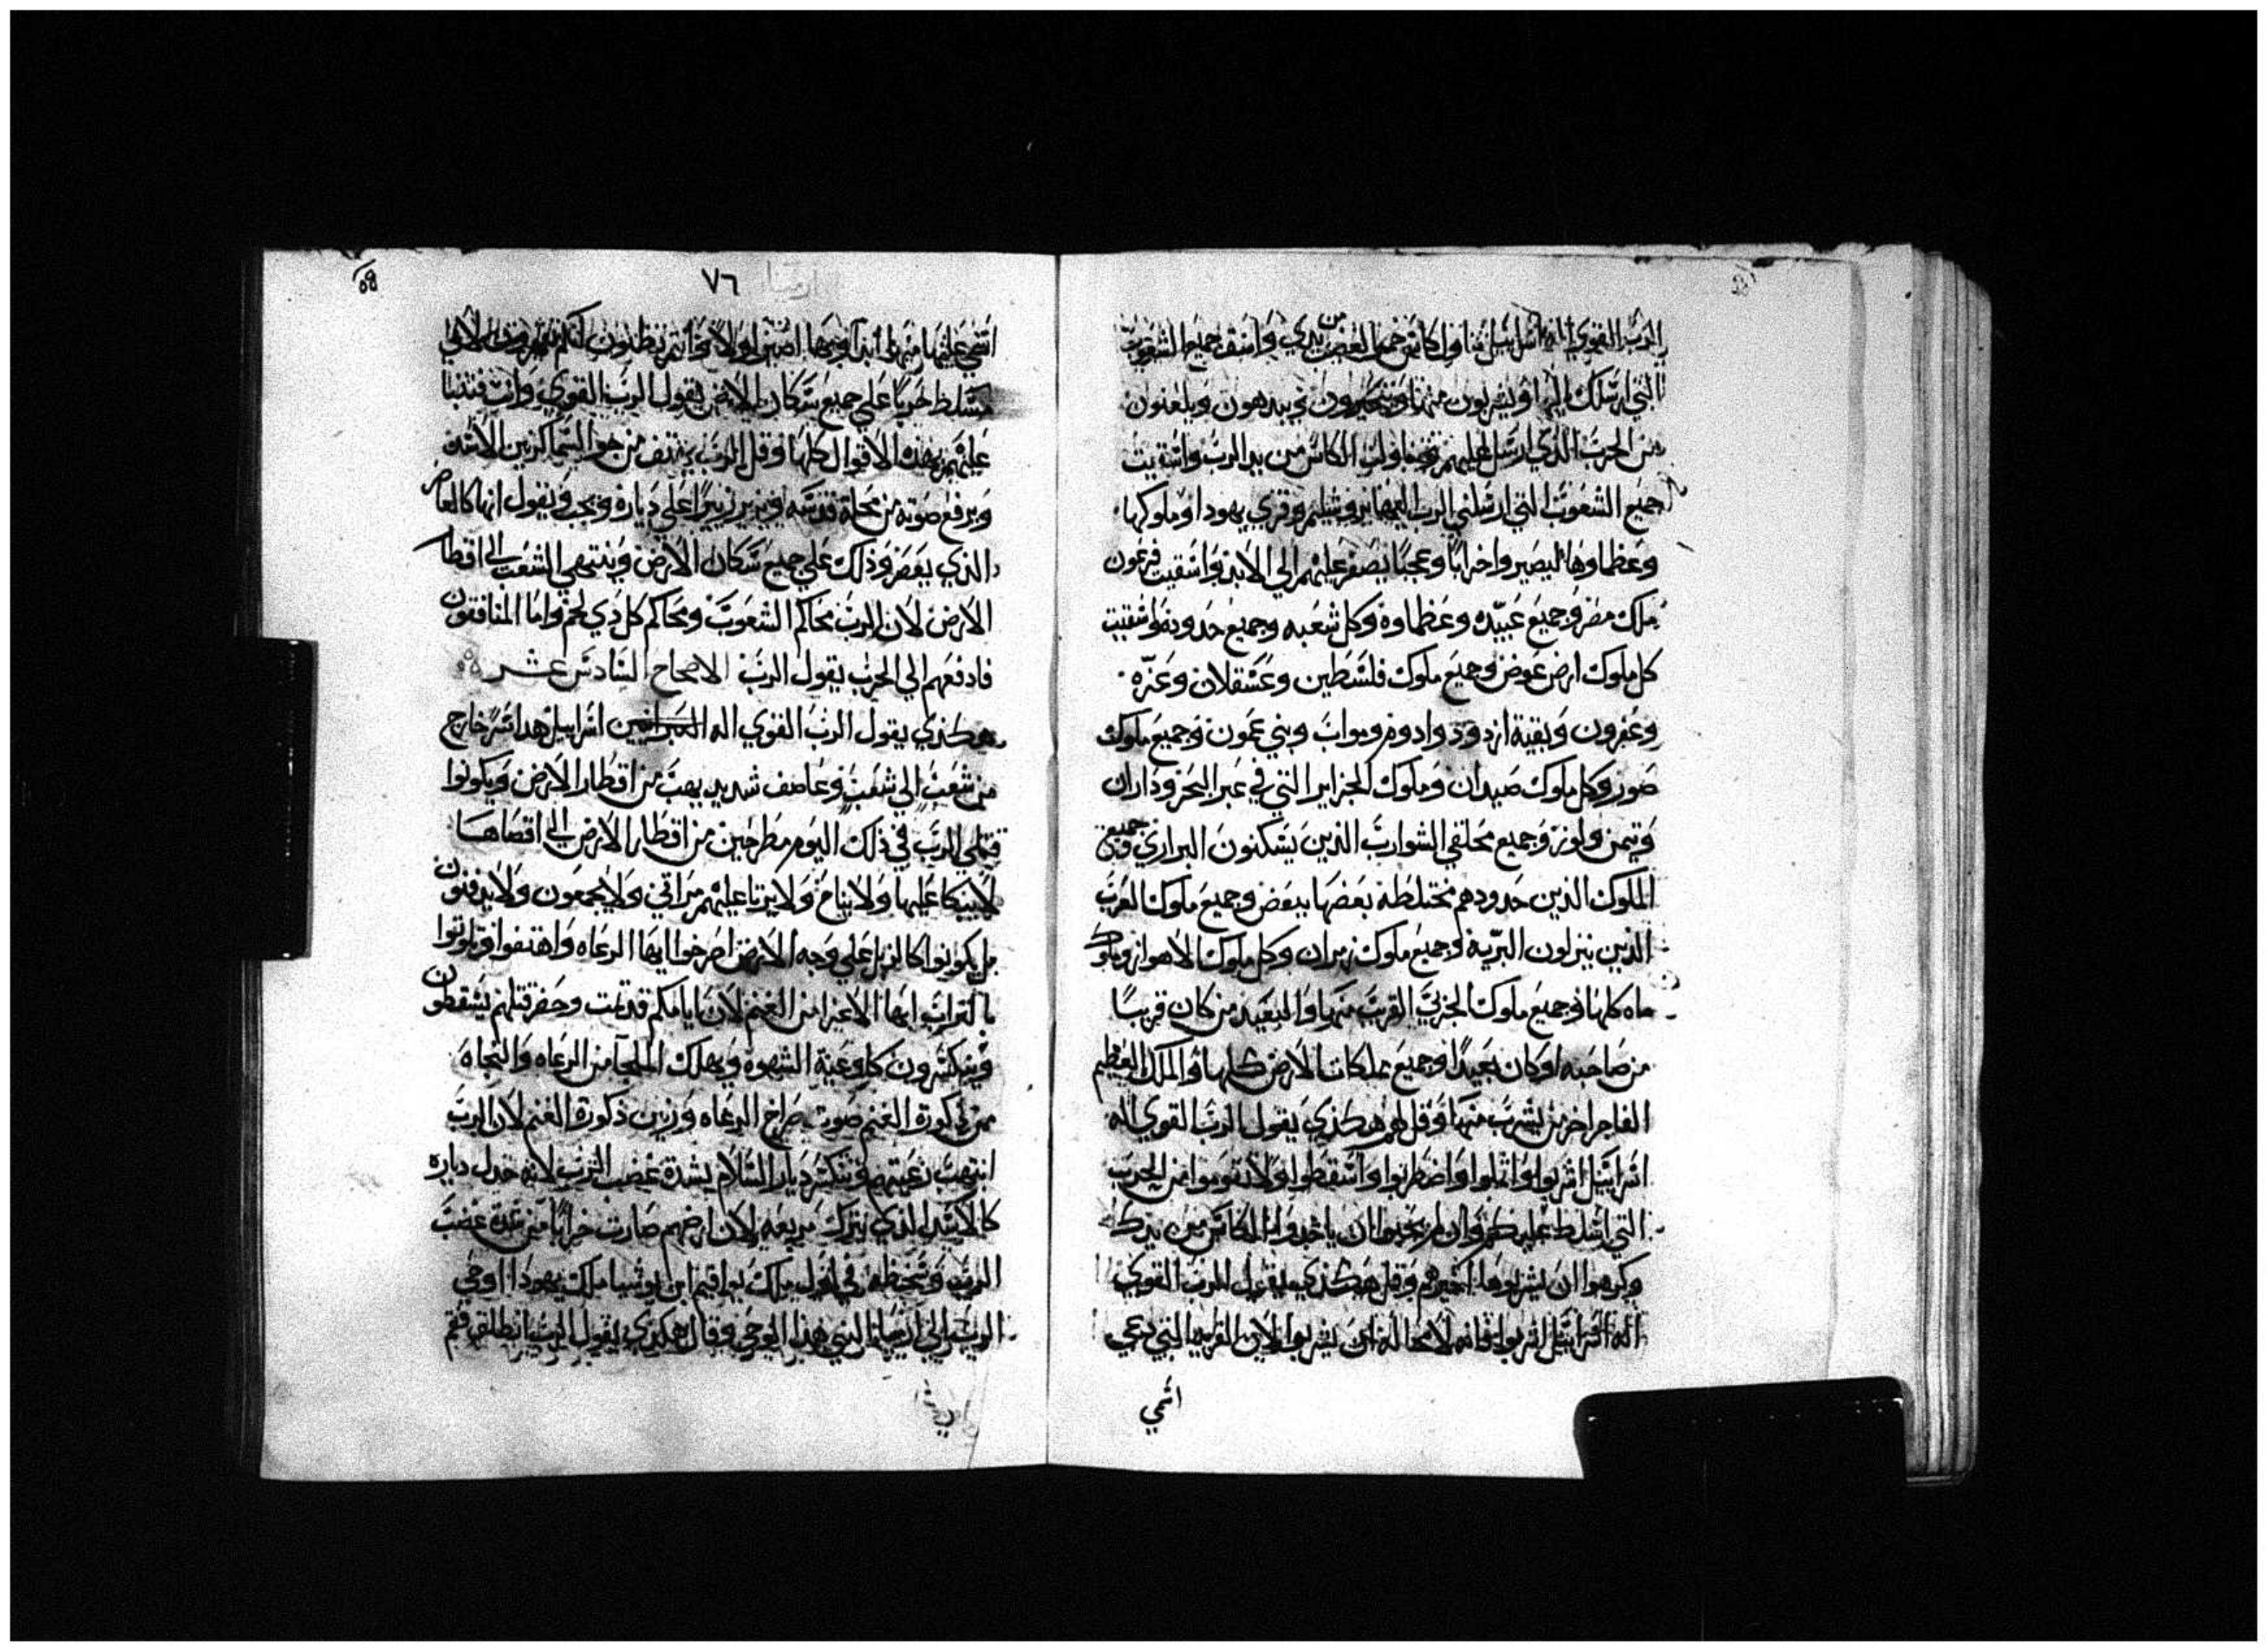 الرب القوي اله اسراييل تناول كاس خمر الغضب من يدي واسق جميع الشعوب
التي ارسلك اليها ويشربون منها ويتحيرون ويبدهون ويلعنون
من الحرب الذي ارسل عليهم فتناولت الكاس من يد الرب واسقيت
جميع الشعوب التي ارسلني الرب اليها يروشليم وقري يهودا وملوكها
وعظماوها ليصيروا خرابا وعجبا يصفر عليهم الي الابد واسقيت فرعون
ملك مصر وجميع عبيده وعظماوه وكل شعبه وجميع حدوده واسقيت
كل ملوك ارض عوض وجميع ملوك فلسطين وعسقلان وغزه
وعفرون وبقية ازدود وادوم ومواب وبني عمون وجميع ملوك
صور وكل ملوك صيدان وملوك الجزاير التي في عبر البحر وداران
وتيمن ولوز وجميع محلقي الشوارب الذين يسكنون البراري وجميع
الملوك الذين حدودهم مختلطة بعضها ببعض وجميع ملوك العرب
الذين ينزلون البرية وجميع ملوك زمران وكل ملوك الاهواز وملوك
ماه كلها وجميع ملوك الجربي القريب منها والبعيد من كان قريبا
من صاحبه او كان بعيدا وجميع مملكات الارض كلها والملك العظيم
الفاجر اخر من يشرب منها وقل لهم هكذي يقول الرب القوي اله
اسراييل اشربوا واثملوا واضطربوا واسقطوا ولا تقوموا من الحرب
التي اسلط عليكم وان لم يحبوا ان ياخذوا الكاس من يدك
وكرهوا ان يشربوها اخبرهم وقل هكذي يقول الرب القوي
اله اسراييل اشربوا فانه لا محالة ان يشربوا لان القرية التي دعي
اسمي
٧٦
اسمي عليها منها ابتدا وبها
مسلط حربا علي جميع سكان الارض يقول الرب القوي وانت فتنبا
عليهم بهذه الاقوال كلها وقل الرب يهتف من جو السما كزيير الاسد
ويرفع صوته من محلة قدسه ويزير زييرا علي دياره ويجب ويقول انها كالعاصر
الذي يعصر وذلك علي جميع سكان الارض وينتهي الشغب الي اقطار
الارض لان الرب يحاكم الشعوب ويحاكم كل ذي لحم واما المنافقون
فادفعهم الي الحرب يقول الرب الاصحاح السادس عشر
هكذي يقول الرب القوي اله العبرانيين اسراييل هذا شر خارج
من شعب الي شعب وعاصف شديد يهب من اقطار الارض ويكونوا
قتلي الرب في ذلك اليوم مطرحين من اقطار الارض الي اقصاها
لا يبكا عليها ولا يناح ولا يرثا عليهم مراثي ولا يجمعون ولا يدفنون
بل يكونوا كالزبل علي وجه الارض اصرخوا ايها الرعاه واهتفوا وتلوثوا
بالتراب ايها الاعزا من الغنم لان ايامكم قد تمت وحضر قتلهم يسقطون
وينكسرون كاوعية الشهوة ويهلك الملجا من الرعاه والنجاه
من ذكورة الغنم صوت صراخ الرعاه وزيير ذكورة الغنم لان الرب
انتهب رعيتهم وتنكسر ديار السلام بشدة غضب الرب لانه خذل دياره
كالاسد الذي يترك مربعه لان ارضهم صارت خرابا من شدة غضب
الرب وسخطه في اول ملك يواقيم ابن يوشيا ملك يهودا اوحي
الرب الي ارميا النبي هذا الوحي وقال هكذي يقول الرب انطلق فقم